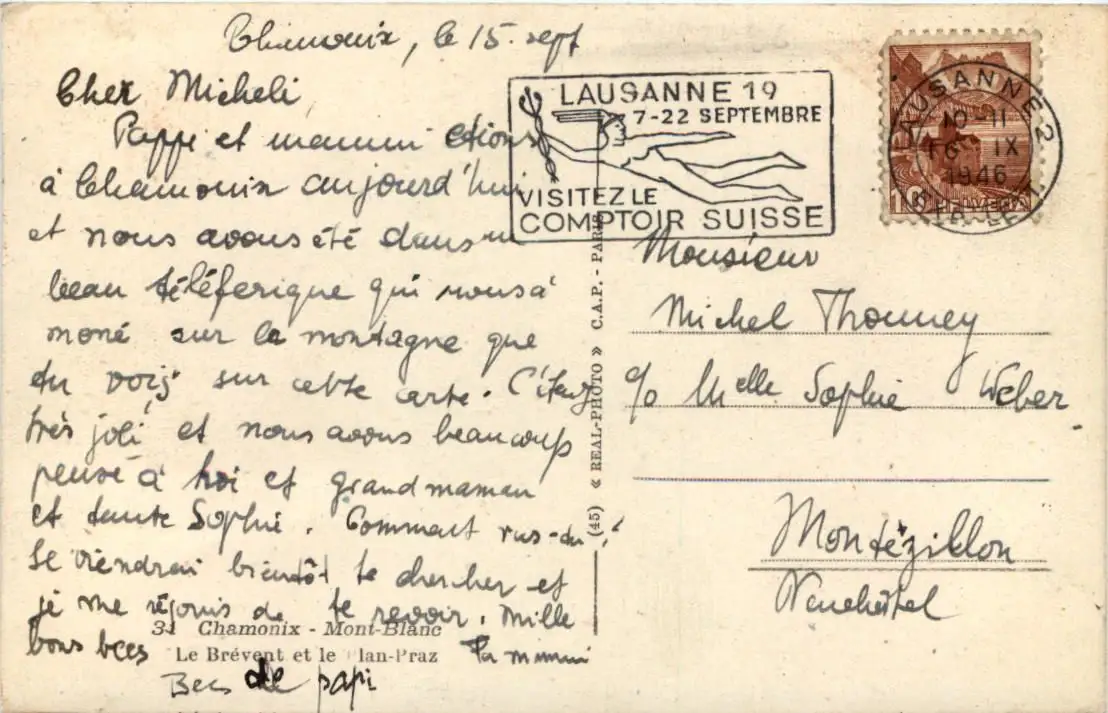 Chamonix, le 15. sept
Cher Micheli
Pappi et mammi étions
à Chamonix aujourd'hui
et nous avons été dans un
beau téléferique qui nous a
moné sur la montagne que
du vois sur cette carte. C'était
très joli et nous avons beaucoup
pensé à toi et grandmaman
et tante Sophie. Comment vas-du?
Je viendrai bientôt te chercher et
je me réjouis de te revoir. Mille
bons becs Ta mammi
Becs de papi
LAUSANNE 19
7-22 SEPTEMBRE
VISITEZ LE
COMPTOIR SUISSE
LAUSANNE 2
10-11
16 IX
1946
10 HELVETIA
Monsieur
Michel Thonney
c/o Melle Sophie Weber
Montézillon
Neuchâtel
(45) « REAL-PHOTO » C.A.P. - PARIS
31 Chamonix - Mont-Blanc
Le Brévent et le Plan-Praz